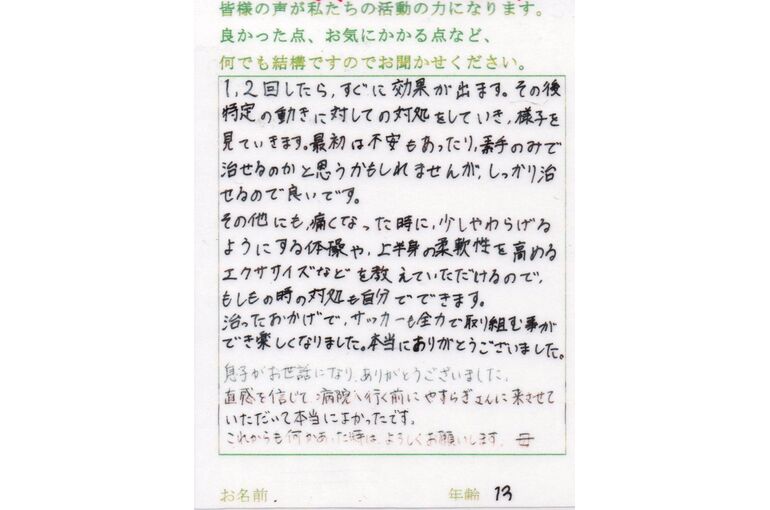 皆様の声が私たちの活動の力になります。
良かった点、お気にかかる点など、
何でも結構ですのでお聞かせください。
1,2回したら,すぐに効果が出ます。その後
特定の動きに対しての対処をしていき,様子を
見ていきます。最初は不安もあったり,素手のみで
治せるのかと思うかもしれませんが,しっかり治
せるので良いです。
その他にも,痛くなった時に,少しやわらげる
ようにする体操や,上半身の柔軟性を高める
エクササイズなどを教えていただけるので,
もしもの時の対処も自分でできます。
治ったおかげで,サッカーも全力で取り組む事が
でき楽しくなりました。本当にありがとうございました。
息子がお世話になり、ありがとうございました。
直感を信じて病院へ行く前にやすらぎさんに来させて
いただいて本当によかったです。
これからも何かあった時は、よろしくお願いします。 母
お名前
年齢 13